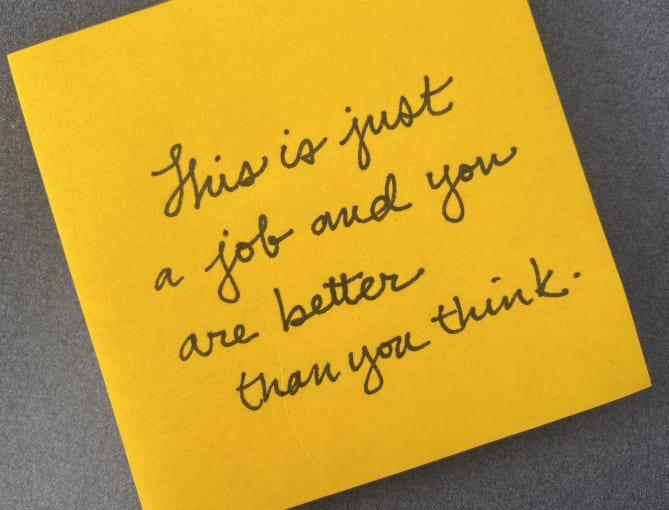 This is just
a job and you
are better
than you think.